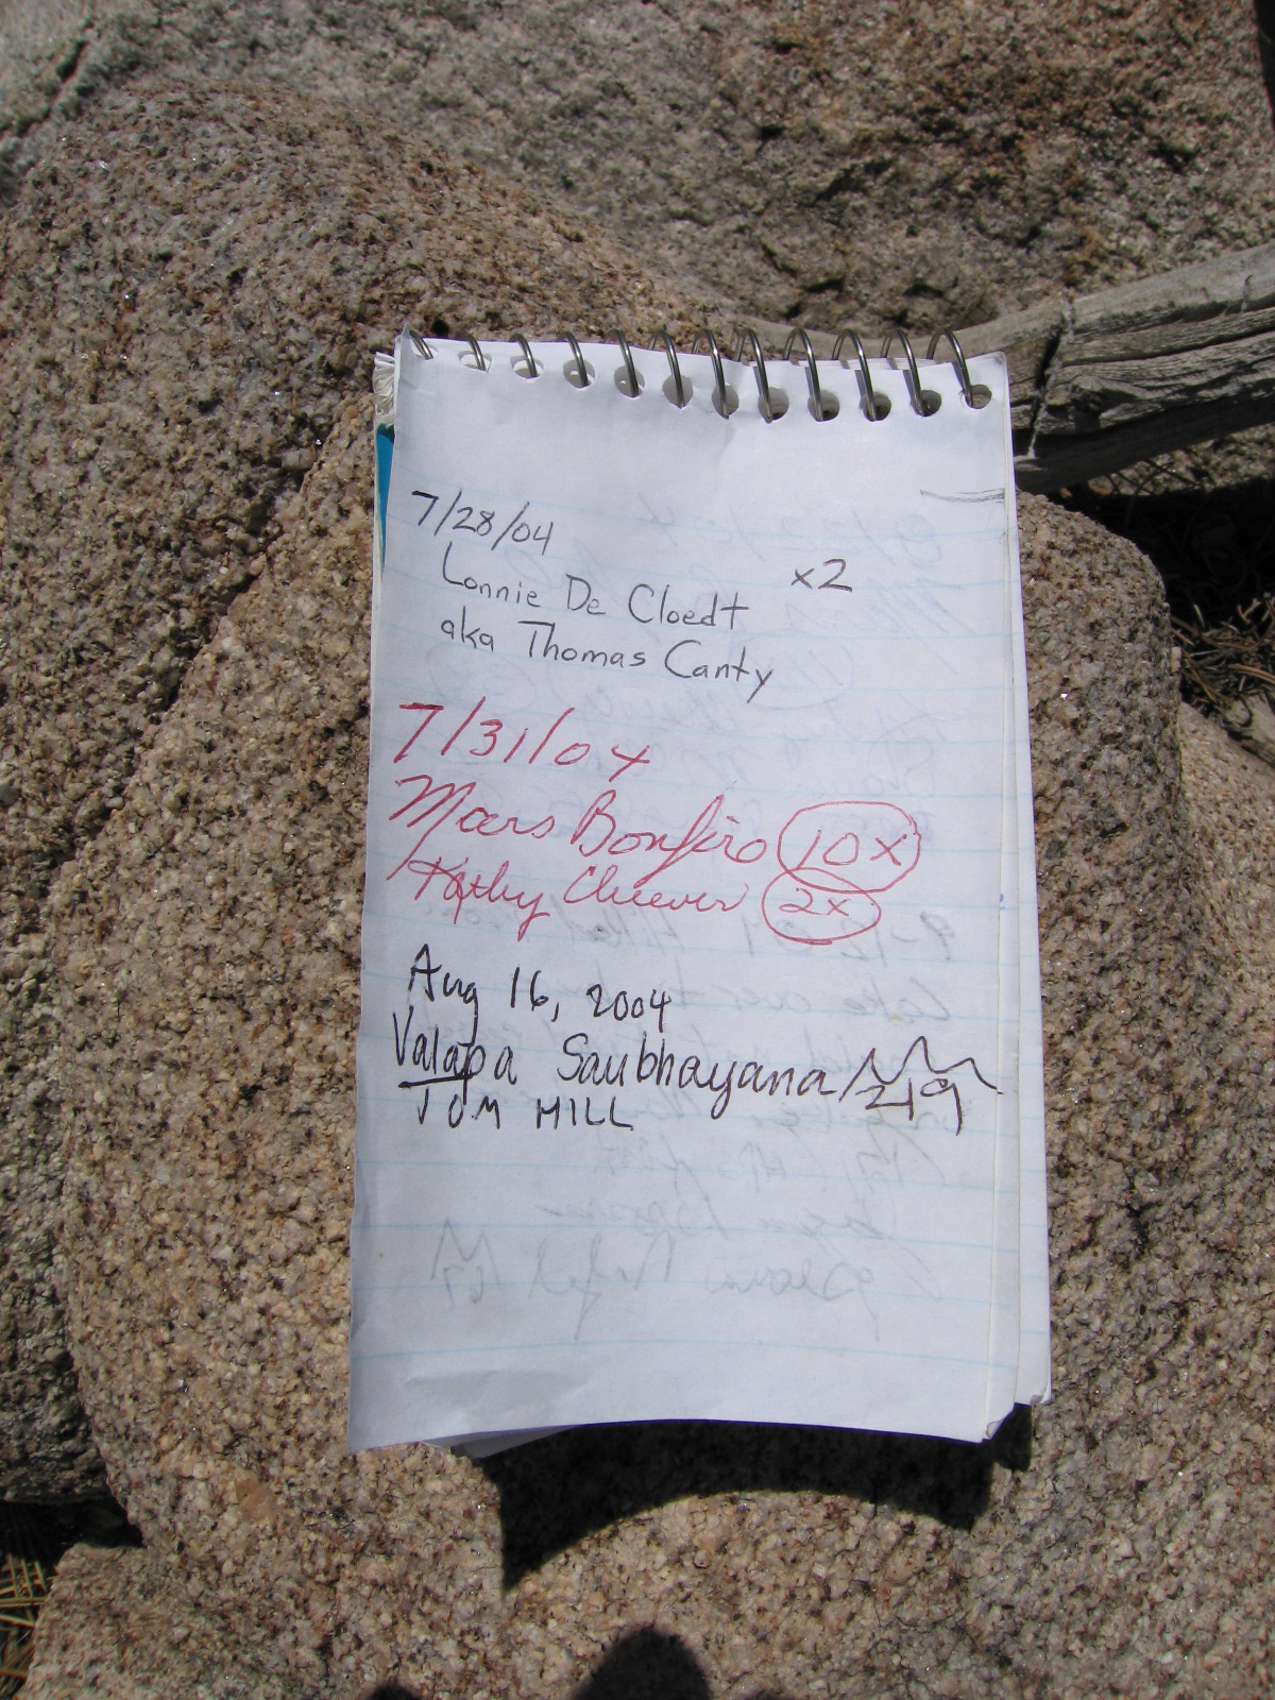 7/28/04
Lonnie De Cloedt x2
aka Thomas Canty
7/31/04
Mars Bonfire 10x
Kathy Cheever 2x
Aug 16, 2004
Valapa Saubhayana 219
TOM HILL